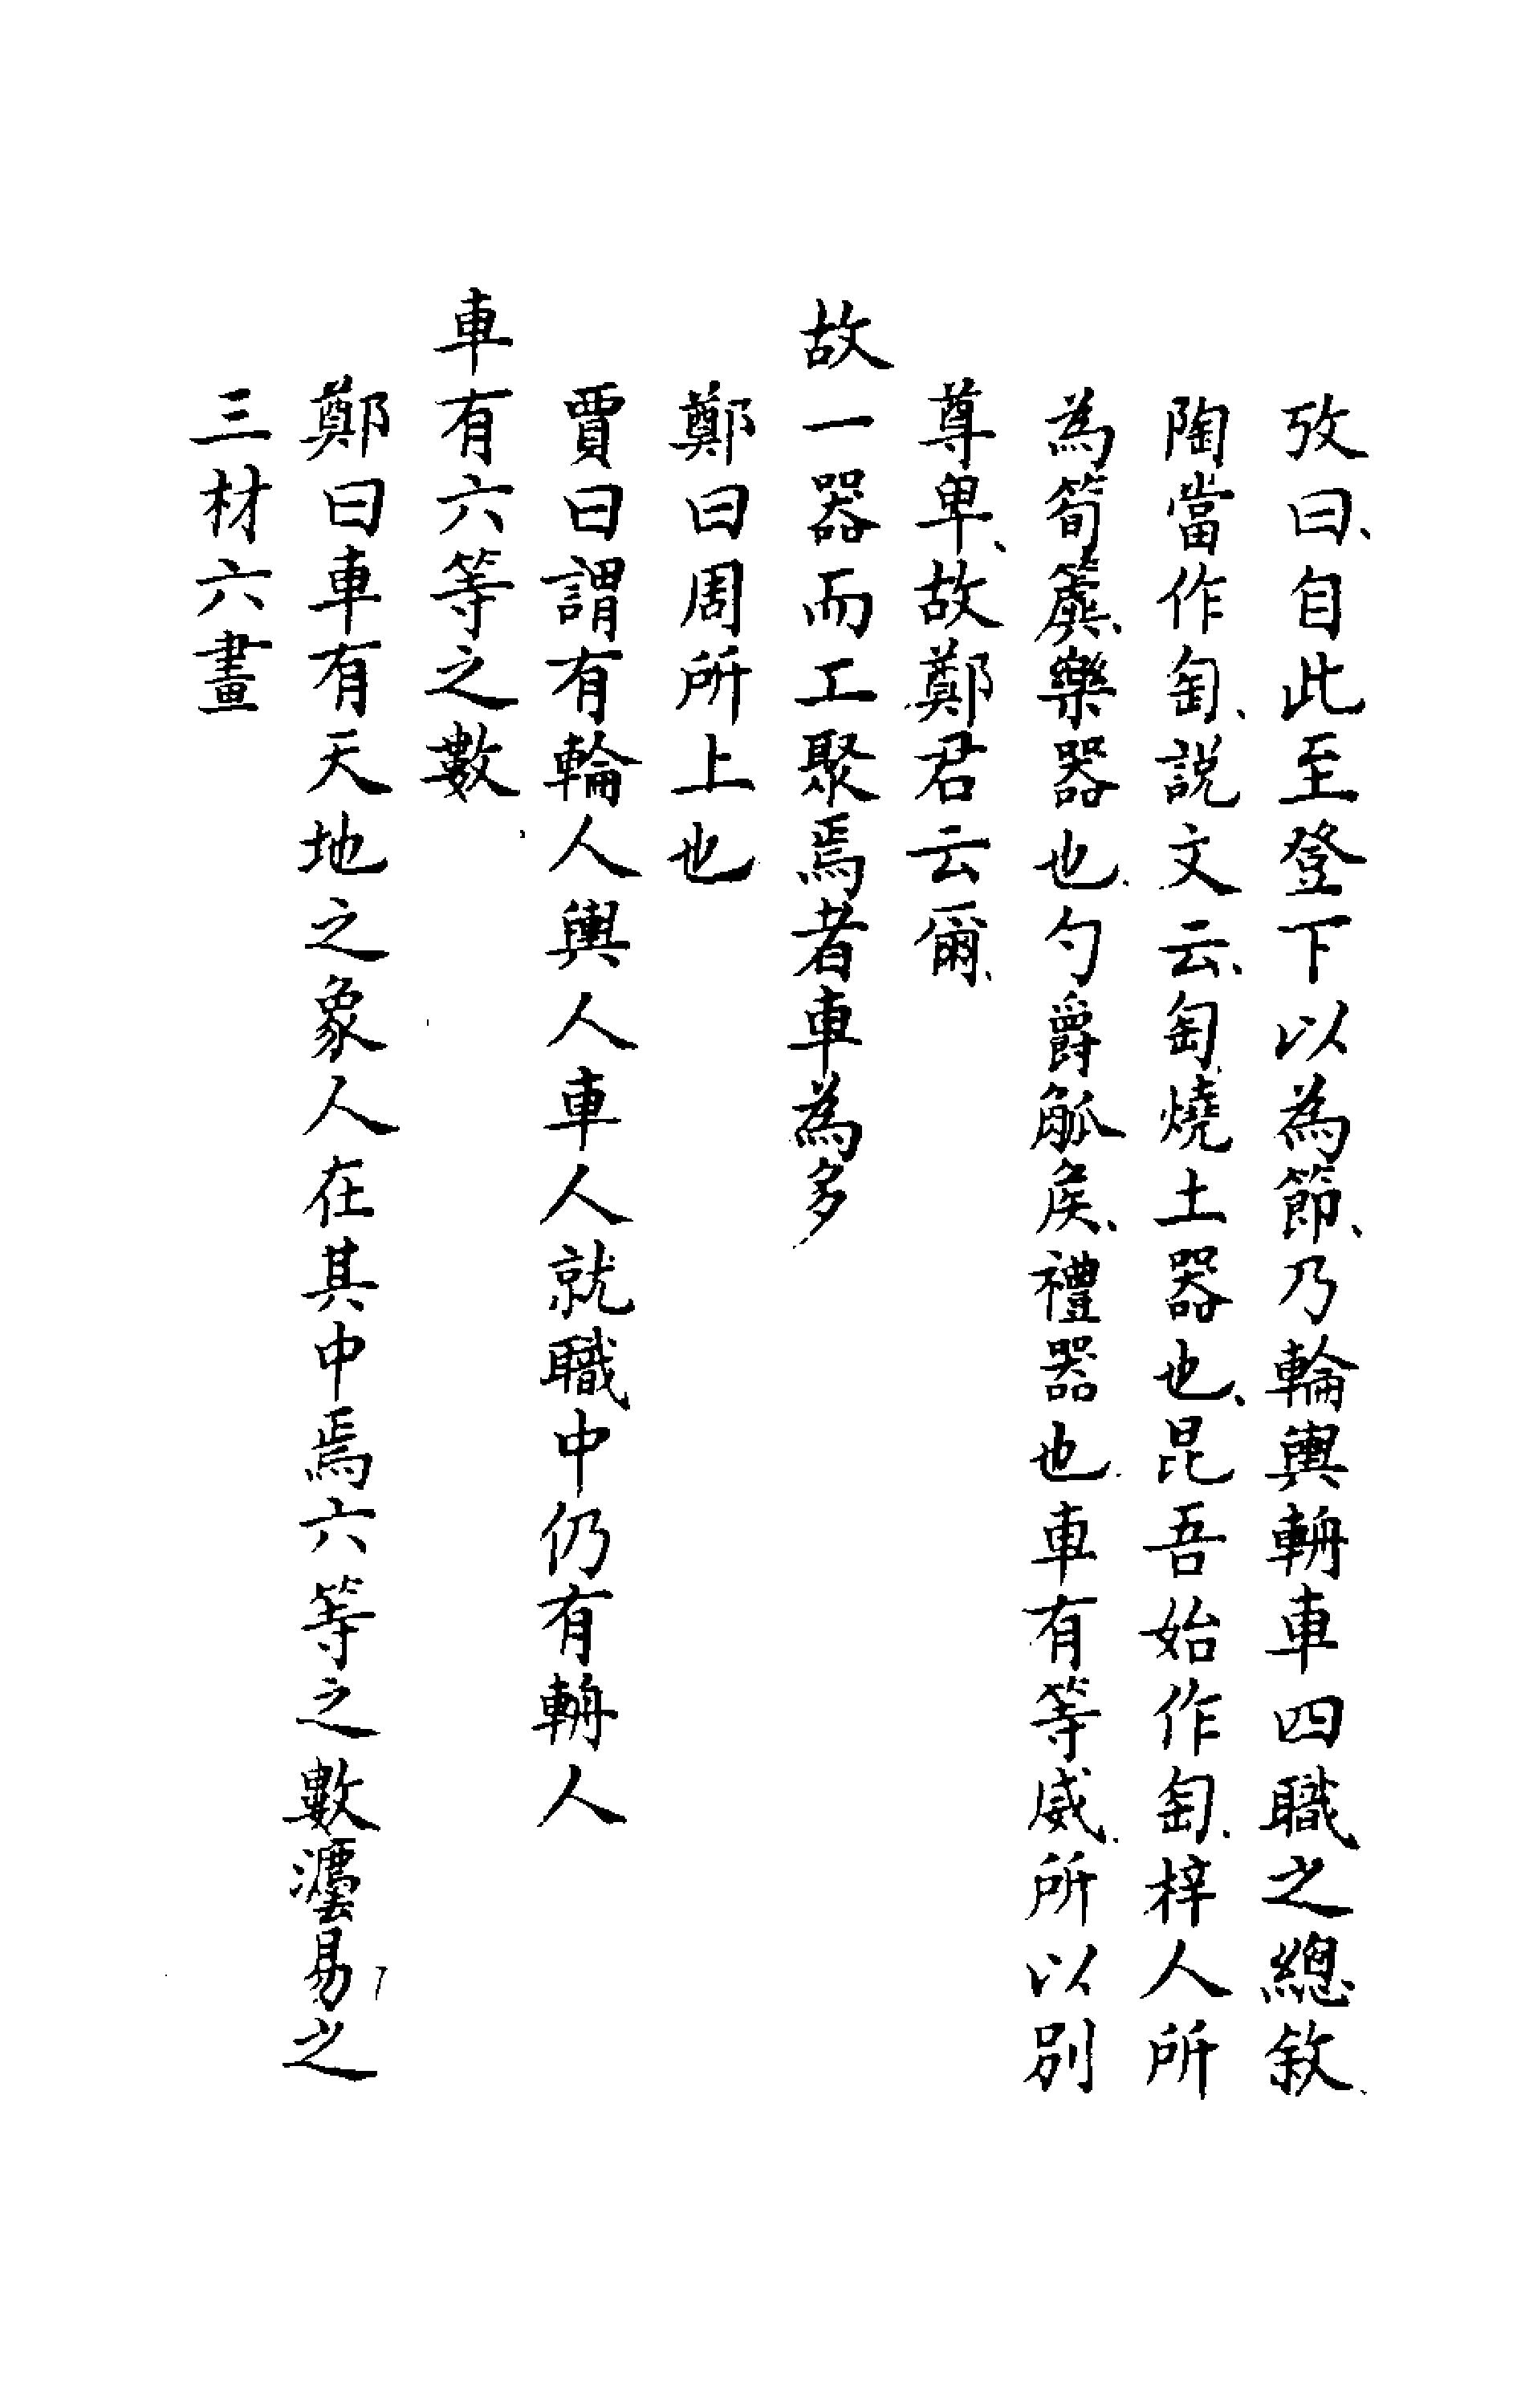 攷曰、自此至登下以為節、乃輪輿輈車四職之總敘、
陶當作匋、説文云、匋燒土器也、昆吾始作匋、梓人所
為筍簴、樂器也、勺爵觚矦、禮器也、車有等威、所以別
尊卑、故鄭君云爾、
故一器而工聚焉者車為多
鄭曰周所上也
賈曰謂有輪人輿人車人就職中仍有輈人
車有六等之數
鄭曰車有天地之象人在其中焉六等之數灋易之
三材六畫